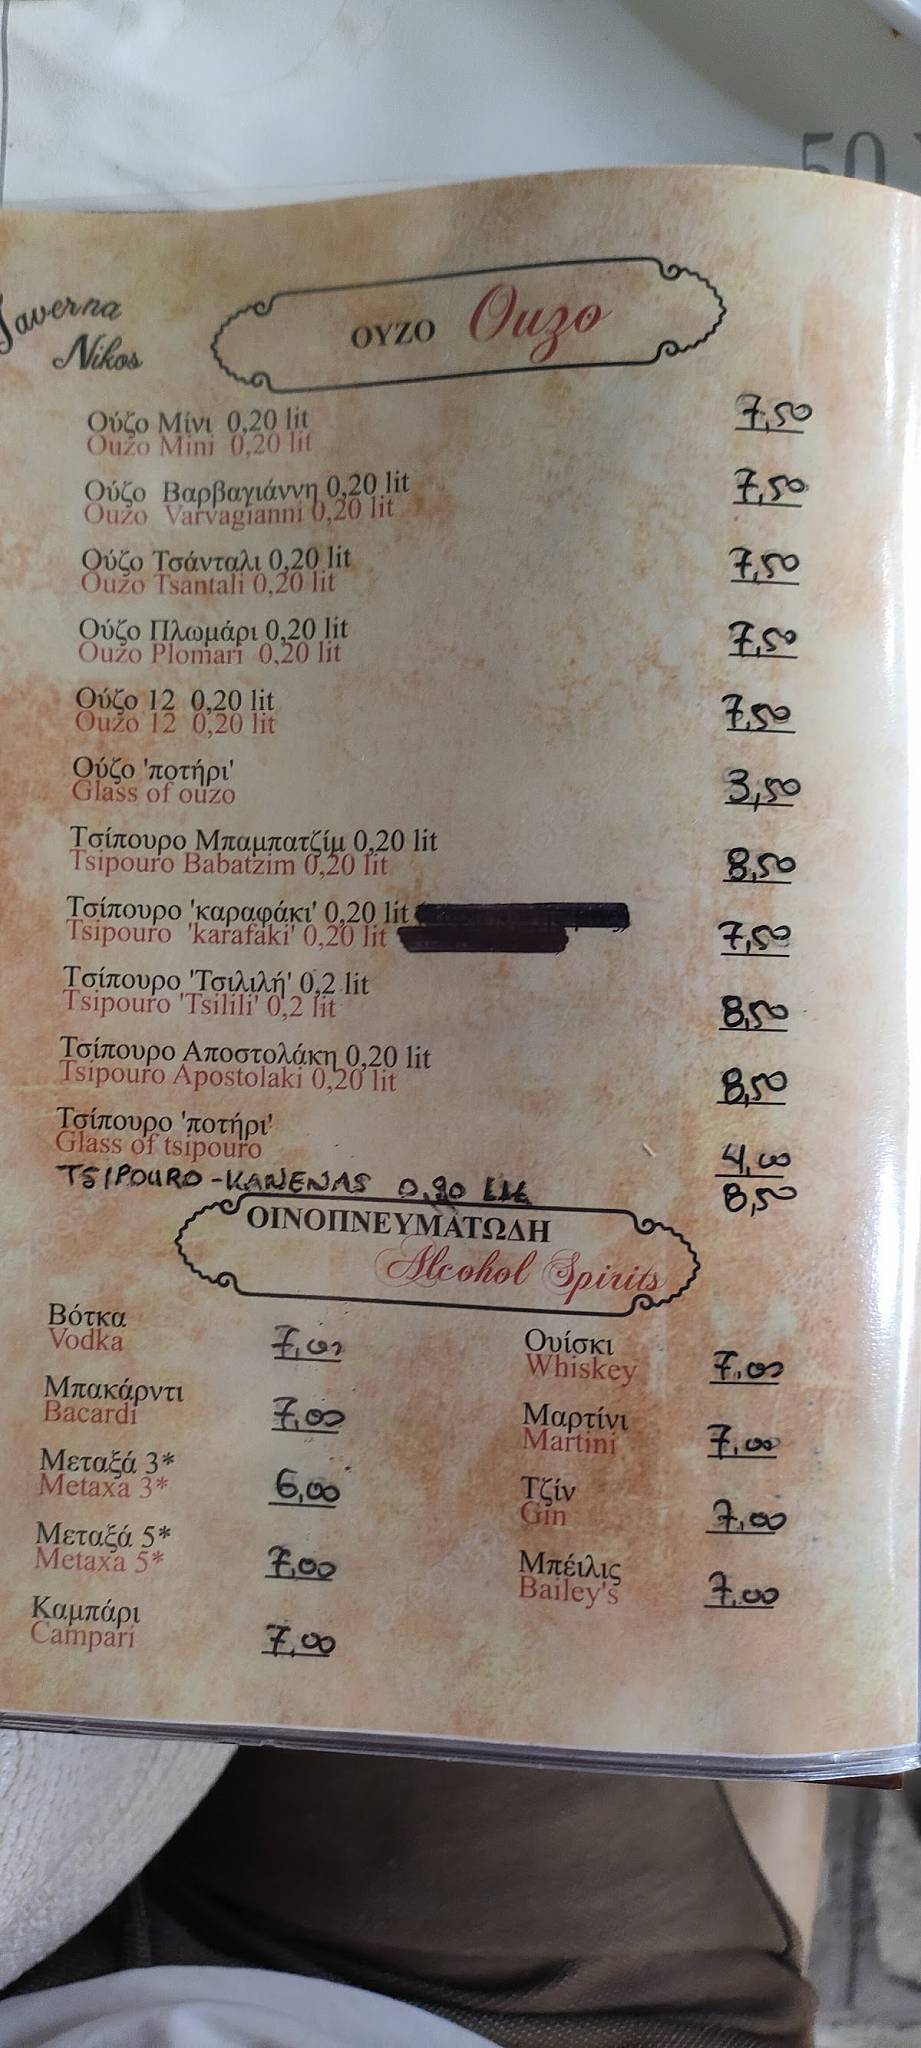 50
Taverna
Nikos
ΟΥΖΟ Ouzo
Ούζο Μίνι 0,20 lit
Ouzo Mini 0,20 lit
7,50
Ούζο Βαρβαγιάννη 0,20 lit
Ouzo Varvagianni 0,20 lit
7,50
Ούζο Τσάνταλι 0,20 lit
Ouzo Tsantali 0,20 lit
7,50
Ούζο Πλωμάρι 0,20 lit
Ouzo Plomari 0,20 lit
7,50
Ούζο 12 0,20 lit
Ouzo 12 0,20 lit
7,50
Ούζο 'ποτήρι'
Glass of ouzo
3,50
Τσίπουρο Μπαμπατζίμ 0,20 lit
Tsipouro Babatzim 0,20 lit
8,50
Τσίπουρο 'καραφάκι' 0,20 lit
Tsipouro 'karafaki' 0,20 lit
7,50
Τσίπουρο 'Τσιλιλή' 0,2 lit
Tsipouro 'Tsilili' 0,2 lit
8,50
Τσίπουρο Αποστολάκη 0,20 lit
Tsipouro Apostolaki 0,20 lit
8,50
Τσίπουρο 'ποτήρι'
Glass of tsipouro
4,00
TSIPOURO-KANENAS 0,20 Lit
8,50
ΟΙΝΟΠΝΕΥΜΑΤΩΔΗ
Alcohol Spirits
Βότκα
Vodka
7,00
Μπακάρντι
Bacardi
7,00
Μεταξά 3*
Metaxa 3*
6,00
Μεταξά 5*
Metaxa 5*
7,00
Καμπάρι
Campari
7,00
Ουίσκι
Whiskey
7,00
Μαρτίνι
Martini
7,00
Τζίν
Gin
7,00
Μπέιλις
Bailey's
7,00